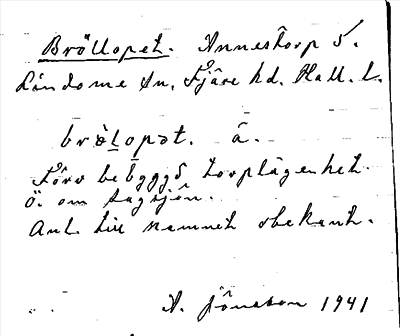 Bröllopet. Annestorp S.
Lindome sn, Fjäre hd. Hall. l.
bröl̲opət. â.
Förr bebyggd torplägenhet
ö. om Tagsjön.
Anl. till namnet obekant.
A. Jönsson 1941